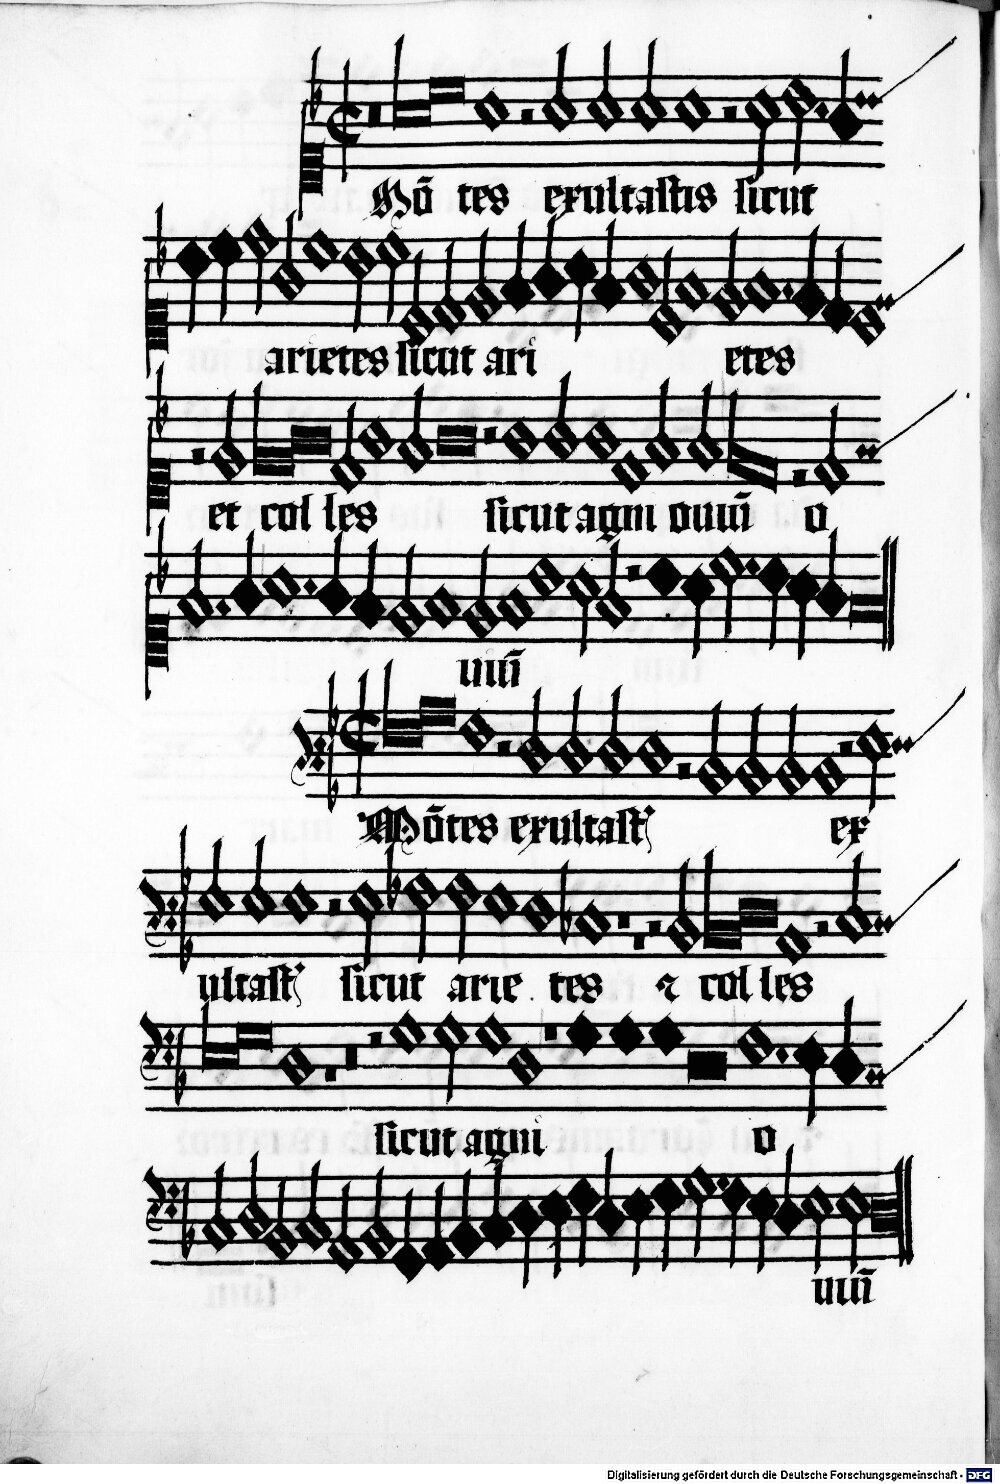 Mōtes exultastis sicut
arietes sicut ari etes
et colles sicut agni ouiū o
uiū
Mōtes exultast ex
ultast sicut arietes ⁊ colles
sicut agni o
uiū
Digitalisierung gefördert durch die Deutsche Forschungsgemeinschaft - DFG